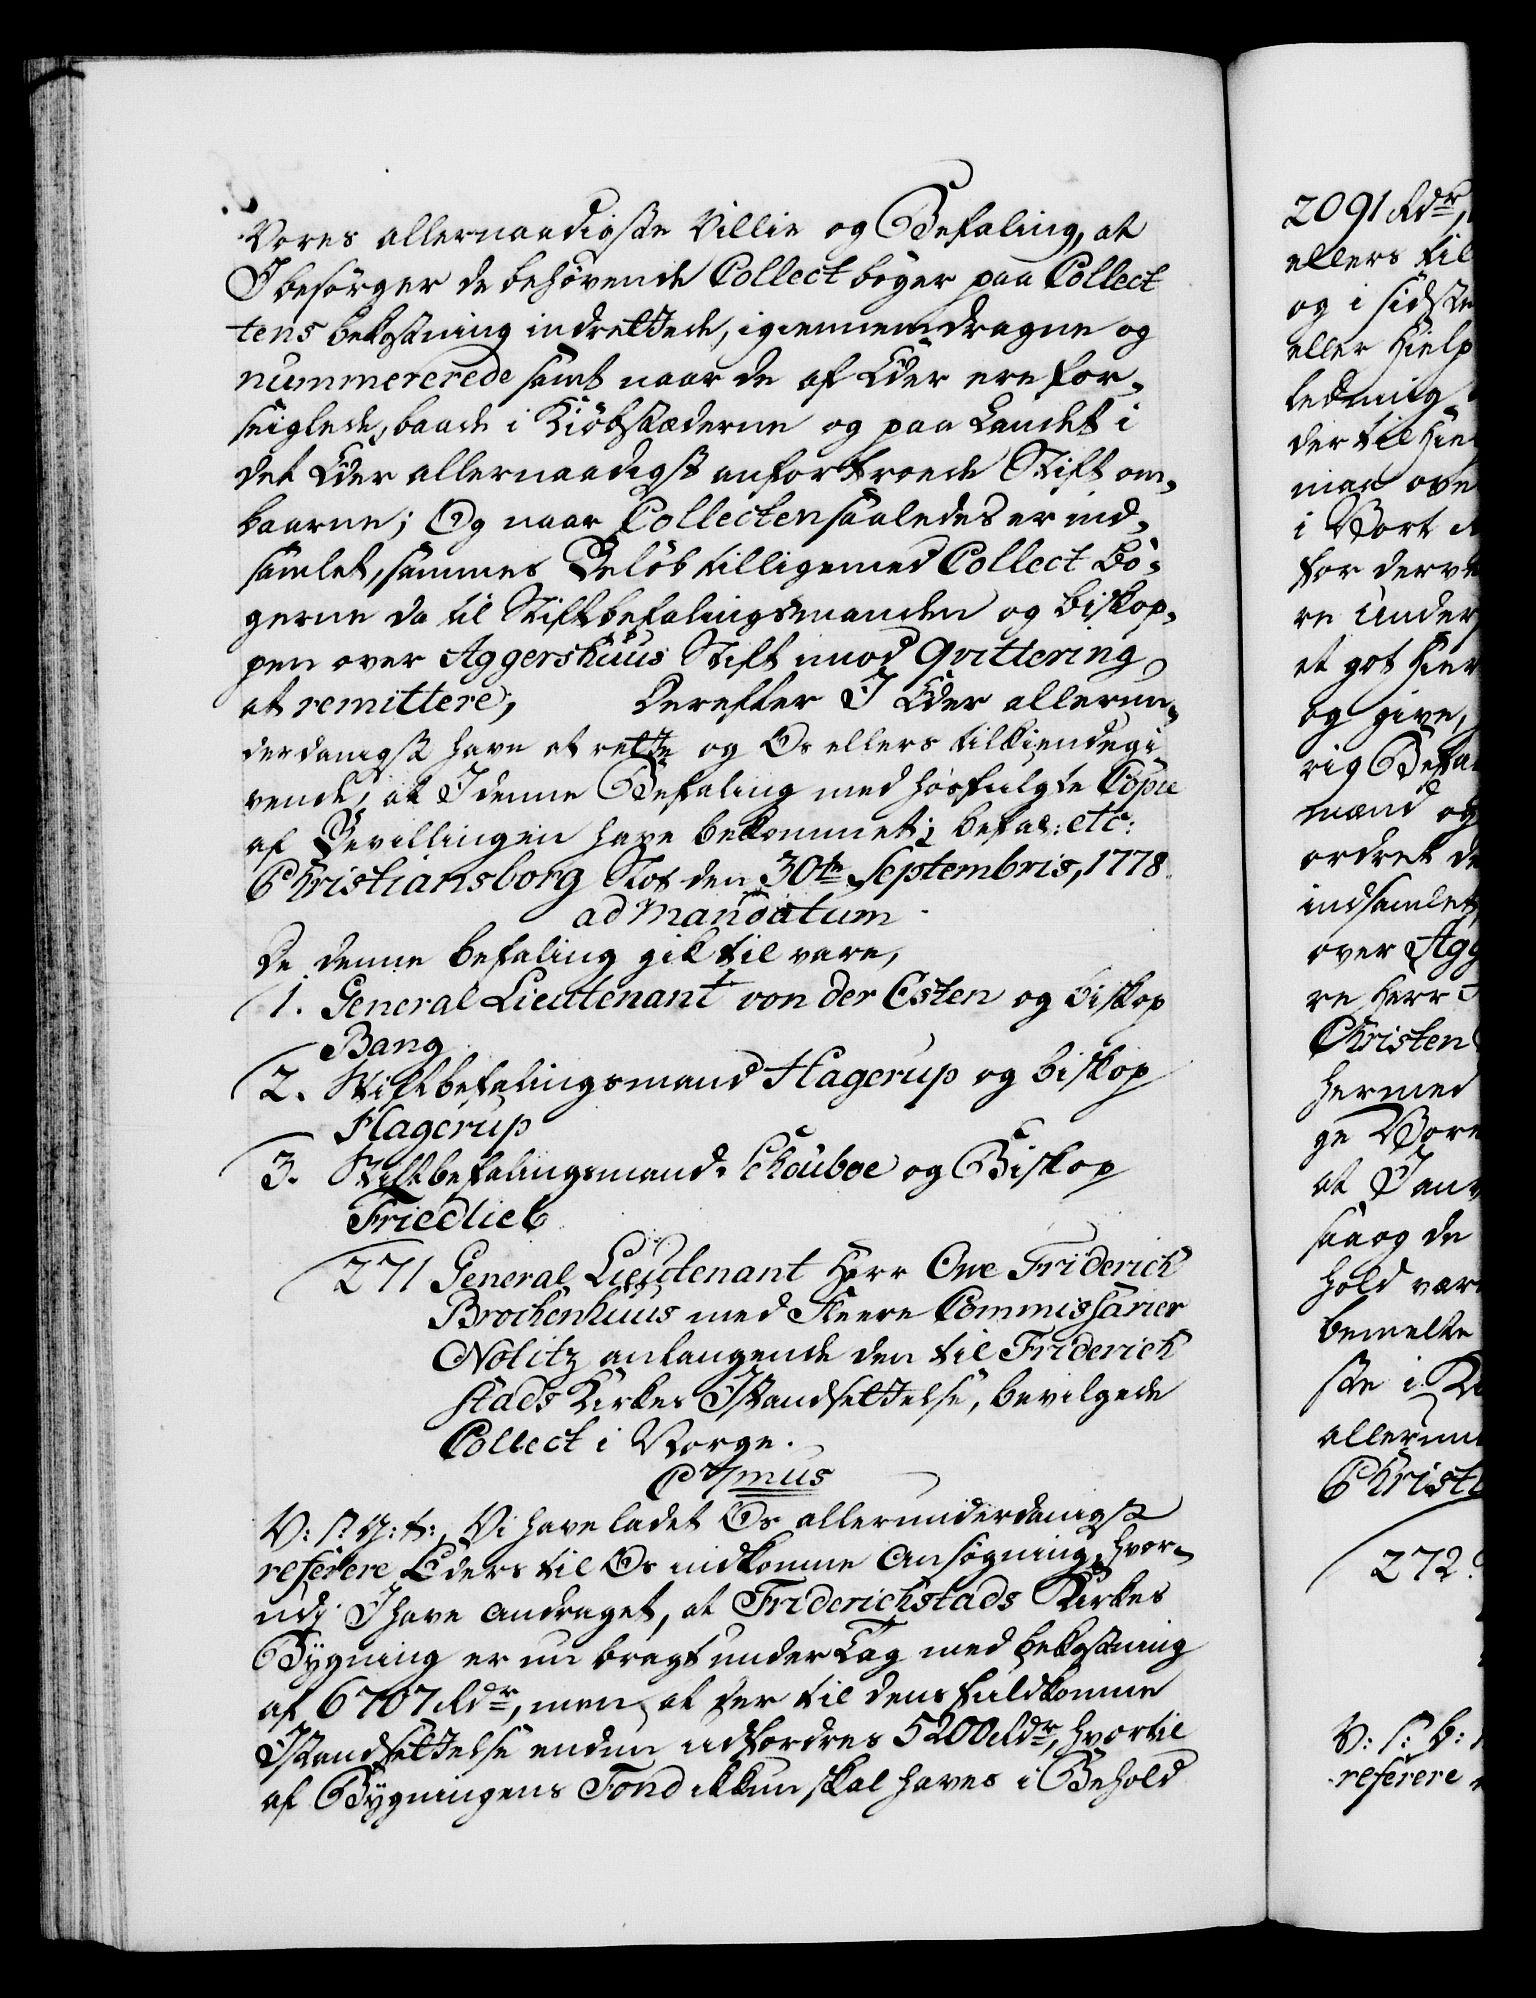 Vores allernaadigste Villie og Befaling, at
I besörger de behövende Collect böger paa Collect
tens bekostning indrettede, igiennemdragne og
nummererede samt naar de af Eder ere for-
seiglede, baade i Kiöbstæderne og paa Landet i
det Eder allernaadigst anfortroede Stift om-
baarne; Og naar Collecten saaledes er ind-
samlet, sammes Belöb tilligemed Collect Bö-
gerne da til Stiftbefalingsmanden og biskop-
pen over Aggershuus Stift imod Qvittering
at remittere, Derefter I Eder allerun-
derdanigst have at rette og Os ellers tilkiendegi
vende, at I denne Befaling med hosfulgte Copie
af Bevillingen have bekommet; befal: etc:
Christiansborg Slot den 30te Septembris, 1778.
ad Mandatum
De denne befaling gik til vare,
1. General Lieutenant von der Osten og biskop
Bang
2. Stiftbefalingsmand Hagerup og biskop
Hagerup
3. Stiftbefalingsmand Schouboe og Biskop
Friedlieb
271 General Lieutenant Herr Ove Friderich
Brochenhuus med fleere Commissarier
Nolitz anlangende den til Friderich
stads Kirkes Istandsettelse, bevilgede
Collect i Norge.
C 7mus
V: s: G: t:, Vi have ladet Os allerunderdanigst
referere Eders til Os indkomne Ansögning, hvor-
udj I have andraget, at Friderichstads Kirkes
Bygning er nu bragt under Tag med bekostning
af 6707 Rdr, men at der til dens fuldkomne
Istandsettelse endnu udfordres 5200 Rdr, hvortil
af Bygningens Fond ikkun skal haves i Behold
2091 Rdr,
ellers til
og i sidste
eller Hielp
ledning
der til Hie
maa ove
i Vort
for derve
re under
et got Hier
og give,
rig Befal
mænd og
ordret de
indsamlet
over Agg
re Herr
Christen
hermed
ge Vore
at I an
saa og de
hold vær
bemelte
ste i Ki
allerun
Christi
272.
V: s: G:
referere